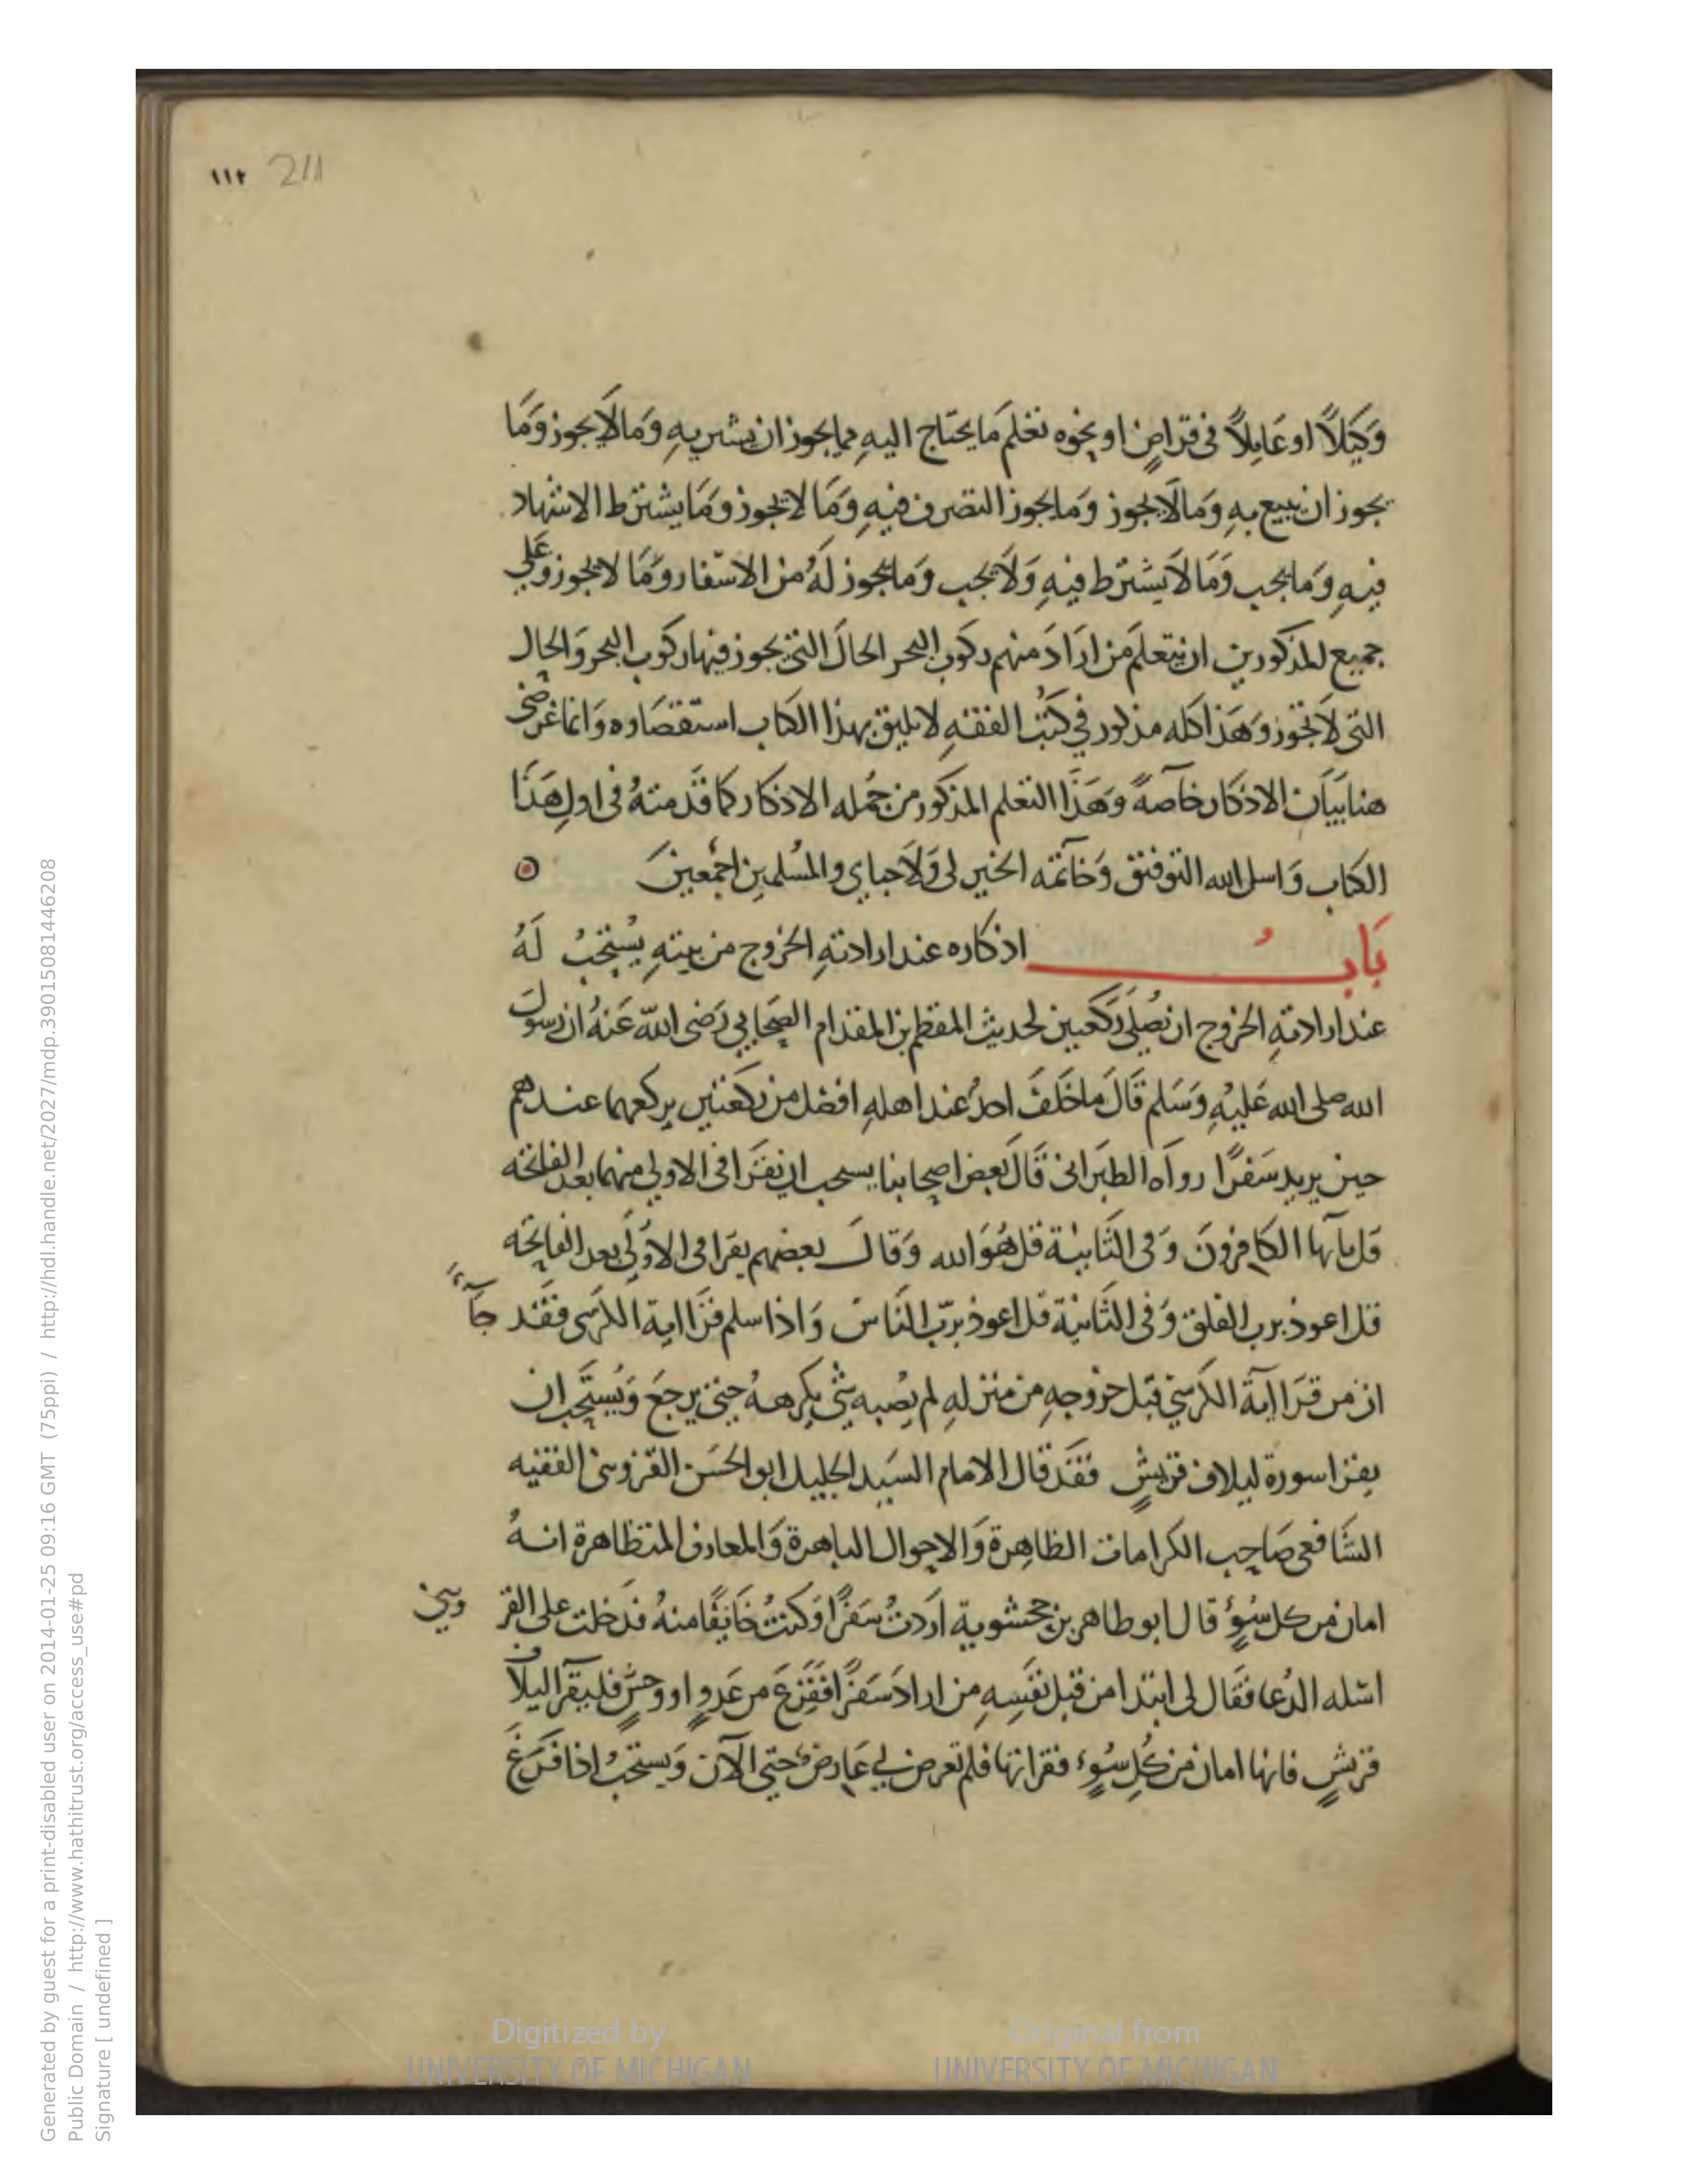 ١١٢ 211
وَكيلاً او عَاملاً في قراضٍ او نحوه تعلم مَا يحتاج اليهِ مما يجوز ان يشتريهِ وَمالَا يجوز وَمَا
يجوز ان يبيع بهِ وَمالَا يجوز وَما يجوز التصرف فيهِ وَمَا لا يجوز وَمَا يشترط الاشهاد
فيهِ وَما يجب وَمَا لَا يشترط فيهِ وَلَا يجب وَما يجوز لَهُ من الاسفار وَمَا لا يجوز وَعَلي
جميع المذكورين ان يتعلم مَن ارَادَ منهم ركوب البحر الحالَ التي يجوز فيها ركوب البحر وَالحال
التي لَا تجوز وَهَذا كله مذكور في كتُب الفقهِ لا يليق بهذا الكتاب استقصَاوه وَانما غرضي
هنا بيَان الاذكار خاصةً وَهَذَا التعلم المذكور من جُمله الاذكار كما قَدمتهُ في اولِ هَذَا
الكتاب وَاسل الله التوفيق وَخاتمه الخير لي وَلَاحبابي والمُسلمين اجمعينَ
بَابُ اذكاره عند ارادتهِ الخروج من بيتهِ يُستحبُ لَهُ
عند ارادتهِ الخروج ان يُصلي رَكعتين لحديث المقطم بن المقدام الصحابي رَضي الله عَنهُ ان رسولَ
الله صلى الله عَليْهِ وَسَلم قَالَ ما خَلفَ احدٌ عند اهلهِ افضل من رَكعتين يركعهما عندهم
حين يريد سَفرًا رواه الطبَراني قَالَ بعض اصحابنا يسحب ان يقرَا في الاولي منهما بعد الفاتحه
قل ياَيها الكافرونَ وَفي الثَانيْة قل هُوَ الله وَقالَ بعضهم يقرا في الاوُلي بعد الفاتحه
قل اعوذ برب الفلق وَفي الثَانية قل اعوذ بربّ النَاس وَاذا سلم قرَا اية الكرسي فقَد جَآءَ
ان من قرَا ايةَ الكرسيّ قبل خروجهِ من منزلهِ لم يصُبه شي يكرههُ حتي يرجعَ وَيُستَحب ان
يقرا سورة ليلاف قريشٍ فقَد قال الامام السَيد الجليل ابو الحسَن القَزوينى الفقيه
الشَافعي صَاحب الكرامات الظاهِرة وَالاحوال الباهرة وَالمعارف المتظاهرة انهُ
امان من كل سُوءٍ قال ابو طاهر بن جحشويه ارَدتُ سَفرًا وَكنتُ خَايفًا منهُ فدَخلت على القز ويني
اسئله الدُعا فقَال لي ابتدا من قبل نفَسهِ من ارادَ سَفرًا ففَزعَ من عَدوٍ او وحشٍ فليقرا ليلاف
قريشٍ فانها امان من كُلِ سُوءٍ فقراتها فلم تعرض لي عَارضٌ حتى الآن وَيستحبُ اذا فَرَغَ
Generated by guest for a print-disabled user on 2014-01-25 09:16 GMT (75ppi) / http://hdl.handle.net/2027/mdp.39015081446208
Public Domain / http://www.hathitrust.org/access_use#pd
Signature [ undefined ]
Digitized by
UNIVERSITY OF MICHIGAN
Original from
UNIVERSITY OF MICHIGAN